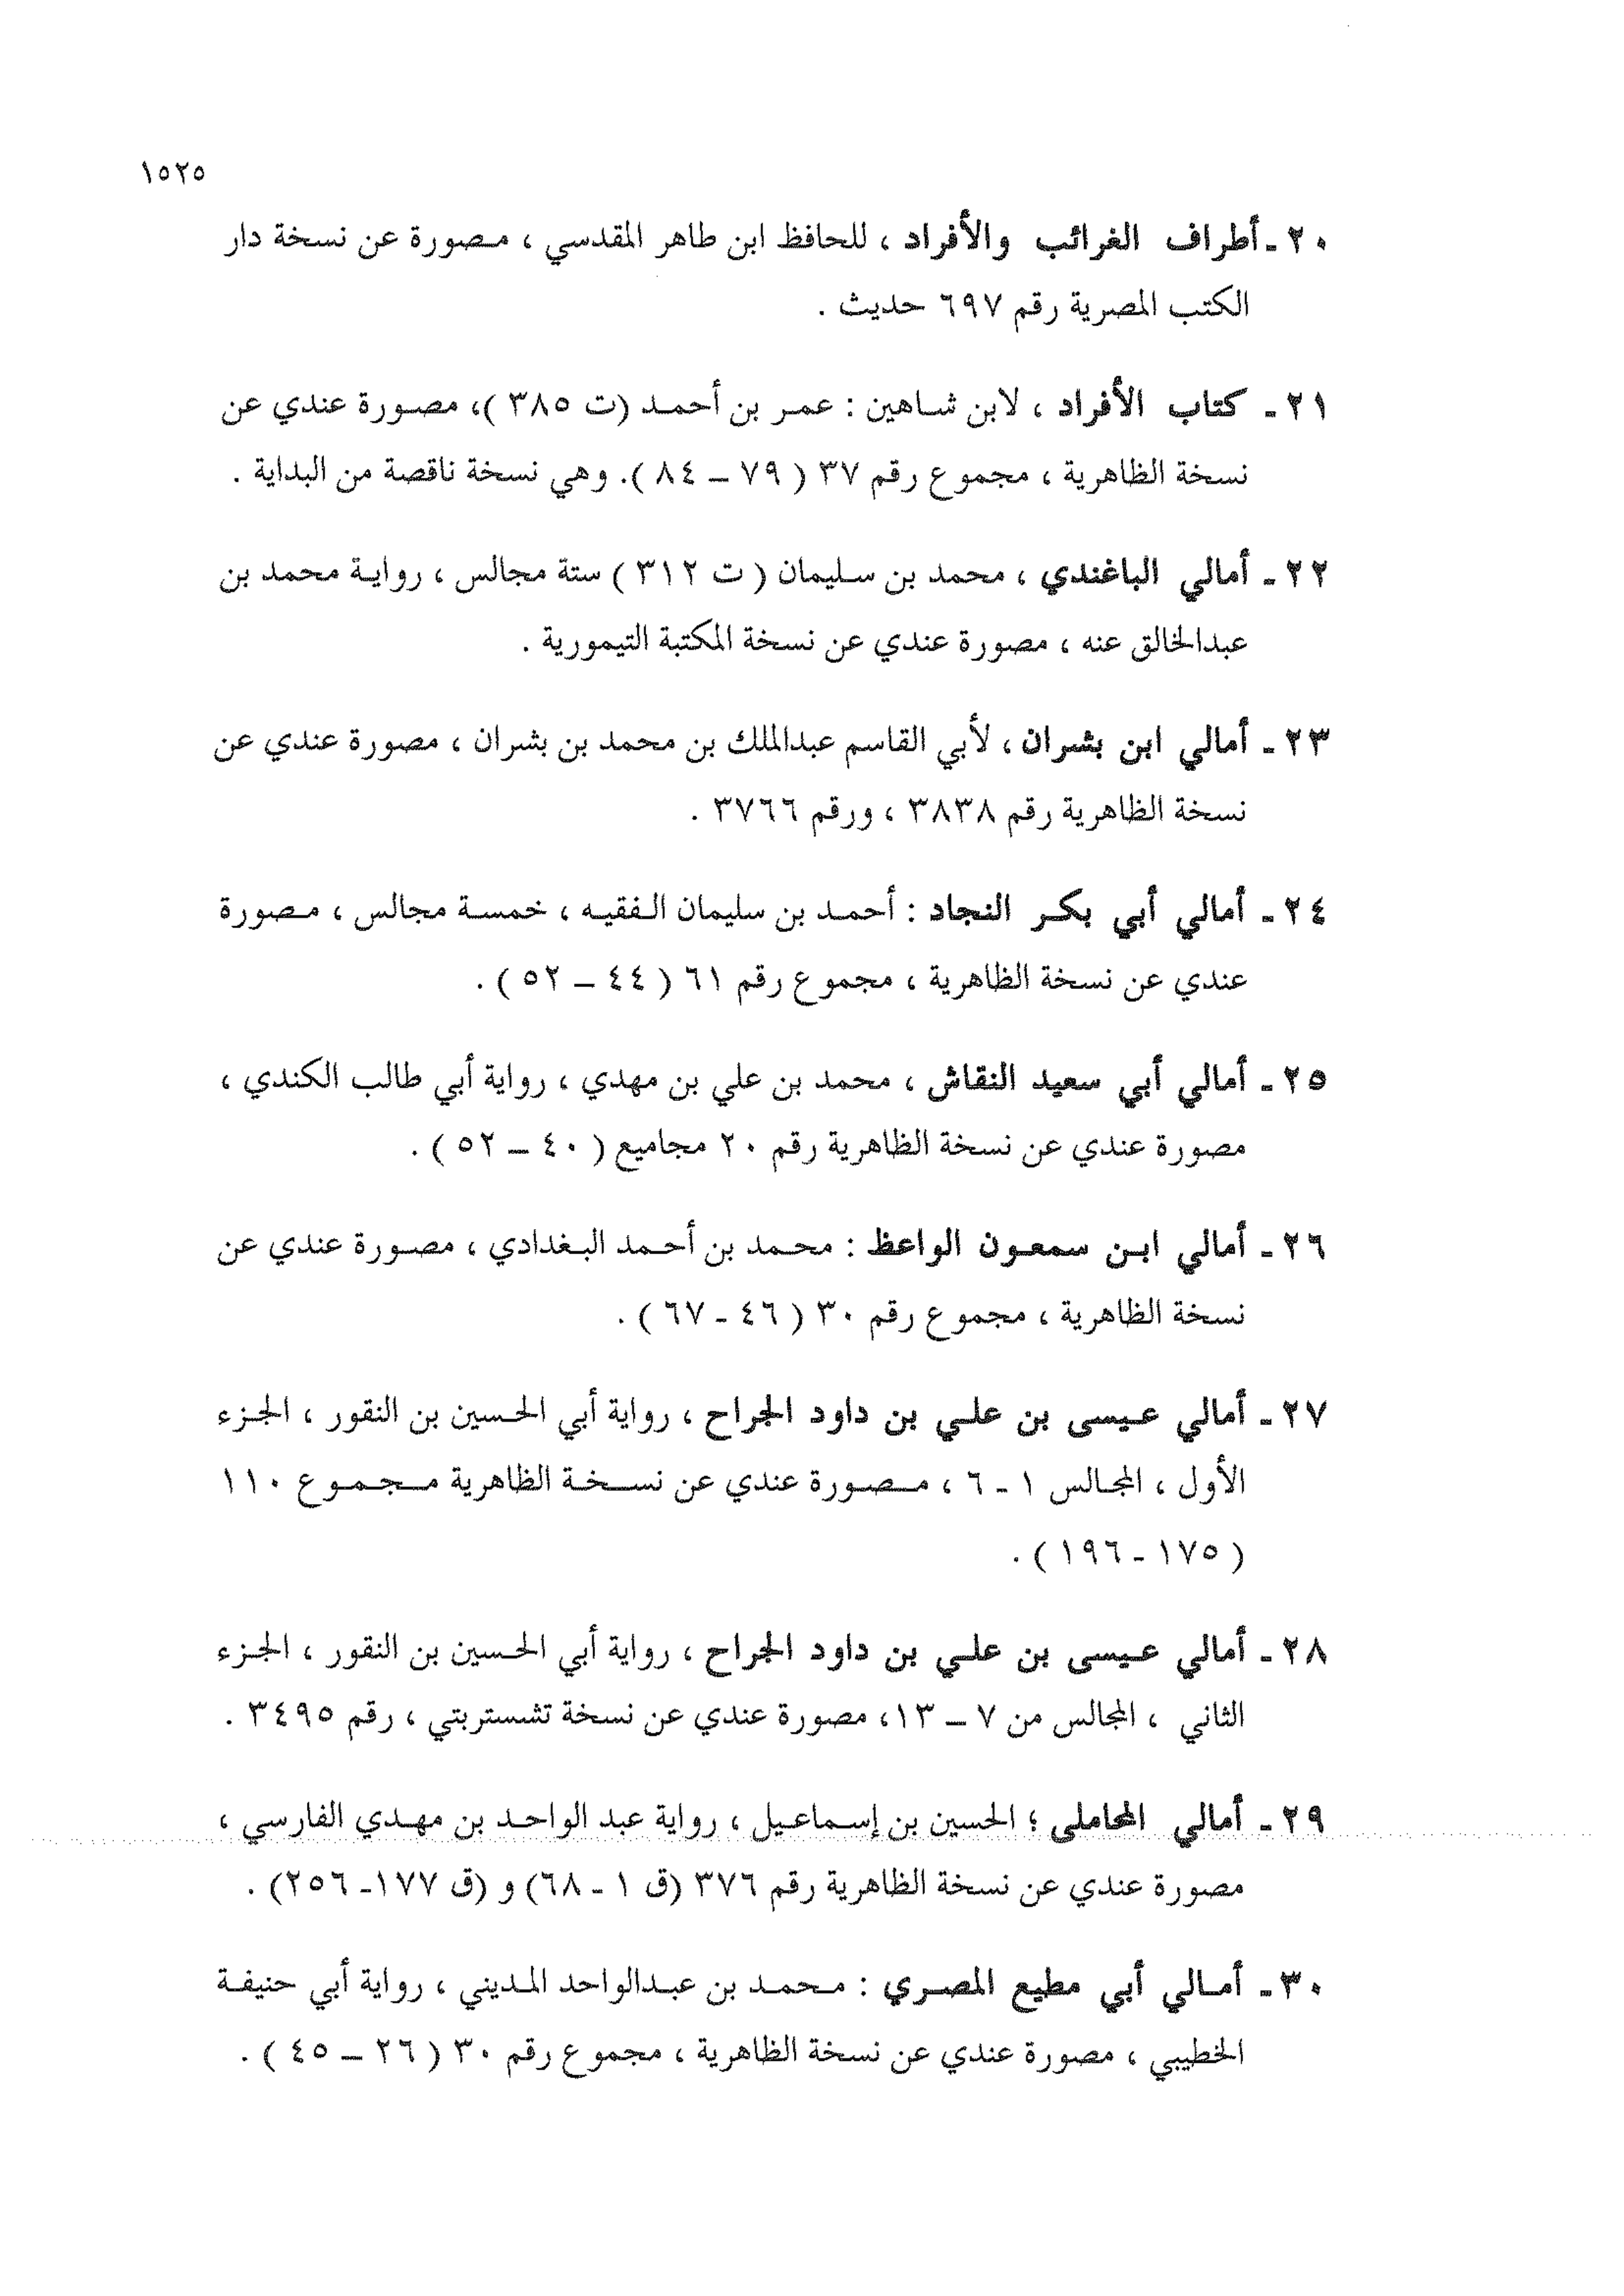 ١٥٢٥
٢٠ـ أطراف الغرائب والأفراد ، للحافظ ابن طاهر المقدسي ، مصورة عن نسخة دار
الكتب المصرية رقم ٦٩٧ حديث .
٢١ـ كتاب الأفراد ، لابن شاهين : عمر بن أحمد (ت ٣٨٥ )، مصورة عندي عن
نسخة الظاهرية ، مجموع رقم ٣٧ ( ٧٩ – ٨٤ ). وهي نسخة ناقصة من البداية .
٢٢ـ أمالي الباغندي ، محمد بن سليمان ( ت ٣١٢ ) ستة مجالس ، رواية محمد بن
عبدالخالق عنه ، مصورة عندي عن نسخة المكتبة التيمورية .
٢٣ـ أمالي ابن بشران ، لأبي القاسم عبدالملك بن محمد بن بشران ، مصورة عندي عن
نسخة الظاهرية رقم ٣٨٣٨ ، ورقم ٣٧٦٦ .
٢٤ـ أمالي أبي بكر النجاد : أحمد بن سليمان الفقيه ، خمسة مجالس ، مصورة
عندي عن نسخة الظاهرية ، مجموع رقم ٦١ ( ٤٤ – ٥٢ ) .
٢٥ـ أمالي أبي سعيد النقاش ، محمد بن علي بن مهدي ، رواية أبي طالب الكندي ،
مصورة عندي عن نسخة الظاهرية رقم ٢٠ مجاميع ( ٤٠ – ٥٢ ) .
٢٦ـ أمالي ابن سمعون الواعظ : محمد بن أحمد البغدادي ، مصورة عندي عن
نسخة الظاهرية ، مجموع رقم ٣٠ ( ٤٦ - ٦٧ ) .
٢٧ـ أمالي عيسى بن علي بن داود الجراح ، رواية أبي الحسين بن النقور ، الجزء
الأول ، المجالس ١ - ٦ ، مصورة عندي عن نسخة الظاهرية مجموع ١١٠
( ١٧٥ - ١٩٦ ) .
٢٨ـ أمالي عيسى بن علي بن داود الجراح ، رواية أبي الحسين بن النقور ، الجزء
الثاني ، المجالس من ٧ – ١٣، مصورة عندي عن نسخة تشستربتي ، رقم ٣٤٩٥ .
٢٩ـ أمالي المحاملى ؛ الحسين بن إسماعيل ، رواية عبد الواحد بن مهدي الفارسي ،
مصورة عندي عن نسخة الظاهرية رقم ٣٧٦ (ق ١ - ٦٨) و (ق ١٧٧- ٢٥٦) .
٣٠ـ أمالي أبي مطيع المصري : محمد بن عبدالواحد المديني ، رواية أبي حنيفة
الخطيبي ، مصورة عندي عن نسخة الظاهرية ، مجموع رقم ٣٠ ( ٢٦ – ٤٥ ) .